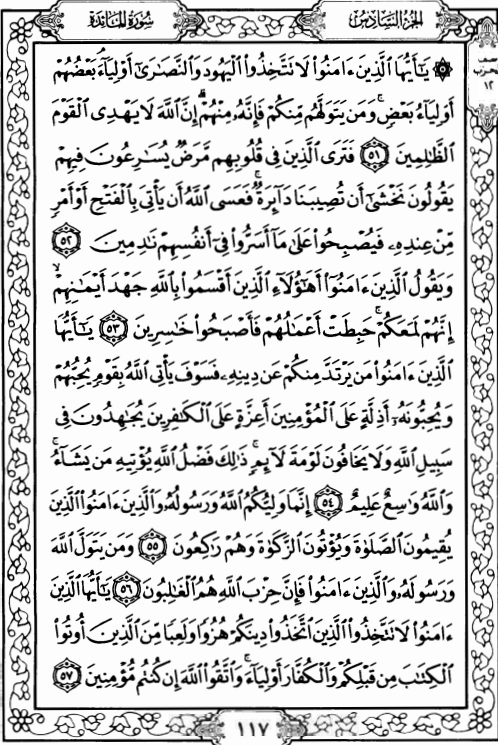 سُورَةُ المَائدَة
الجُزءُ السَّادِسُ
نصف
الحزب
١٢
۞ يَٰٓأَيُّهَا ٱلَّذِينَ ءَامَنُوا۟ لَا تَتَّخِذُوا۟ ٱلْيَهُودَ وَٱلنَّصَٰرَىٰٓ أَوْلِيَآءَۘ بَعْضُهُمْ
أَوْلِيَآءُ بَعْضٍۚ وَمَن يَتَوَلَّهُم مِّنكُمْ فَإِنَّهُۥ مِنْهُمْۗ إِنَّ ٱللَّهَ لَا يَهْدِى ٱلْقَوْمَ
ٱلظَّٰلِمِينَ ٥١ فَتَرَى ٱلَّذِينَ فِى قُلُوبِهِم مَّرَضٌ يُسَٰرِعُونَ فِيهِمْ
يَقُولُونَ نَخْشَىٰٓ أَن تُصِيبَنَا دَآئِرَةٌۚ فَعَسَى ٱللَّهُ أَن يَأْتِىَ بِٱلْفَتْحِ أَوْ أَمْرٍ
مِّنْ عِندِهِۦ فَيُصْبِحُوا۟ عَلَىٰ مَآ أَسَرُّوا۟ فِىٓ أَنفُسِهِمْ نَٰدِمِينَ ٥٢
وَيَقُولُ ٱلَّذِينَ ءَامَنُوٓا۟ أَهَٰٓؤُلَآءِ ٱلَّذِينَ أَقْسَمُوا۟ بِٱللَّهِ جَهْدَ أَيْمَٰنِهِمْۙ
إِنَّهُمْ لَمَعَكُمْۚ حَبِطَتْ أَعْمَٰلُهُمْ فَأَصْبَحُوا۟ خَٰسِرِينَ ٥٣ يَٰٓأَيُّهَا
ٱلَّذِينَ ءَامَنُوا۟ مَن يَرْتَدَّ مِنكُمْ عَن دِينِهِۦ فَسَوْفَ يَأْتِى ٱللَّهُ بِقَوْمٍ يُحِبُّهُمْ
وَيُحِبُّونَهُۥٓ أَذِلَّةٍ عَلَى ٱلْمُؤْمِنِينَ أَعِزَّةٍ عَلَى ٱلْكَٰفِرِينَ يُجَٰهِدُونَ فِى
سَبِيلِ ٱللَّهِ وَلَا يَخَافُونَ لَوْمَةَ لَآئِمٍۚ ذَٰلِكَ فَضْلُ ٱللَّهِ يُؤْتِيهِ مَن يَشَآءُۚ
وَٱللَّهُ وَٰسِعٌ عَلِيمٌ ٥٤ إِنَّمَا وَلِيُّكُمُ ٱللَّهُ وَرَسُولُهُۥ وَٱلَّذِينَ ءَامَنُوا۟ ٱلَّذِينَ
يُقِيمُونَ ٱلصَّلَوٰةَ وَيُؤْتُونَ ٱلزَّكَوٰةَ وَهُمْ رَٰكِعُونَ ٥٥ وَمَن يَتَوَلَّ ٱللَّهَ
وَرَسُولَهُۥ وَٱلَّذِينَ ءَامَنُوا۟ فَإِنَّ حِزْبَ ٱللَّهِ هُمُ ٱلْغَٰلِبُونَ ٥٦ يَٰٓأَيُّهَا ٱلَّذِينَ
ءَامَنُوا۟ لَا تَتَّخِذُوا۟ ٱلَّذِينَ ٱتَّخَذُوا۟ دِينَكُمْ هُزُوًا وَلَعِبًا مِّنَ ٱلَّذِينَ أُوتُوا۟
ٱلْكِتَٰبَ مِن قَبْلِكُمْ وَٱلْكُفَّارَ أَوْلِيَآءَۚ وَٱتَّقُوا۟ ٱللَّهَ إِن كُنتُم مُّؤْمِنِينَ ٥٧
١١٧